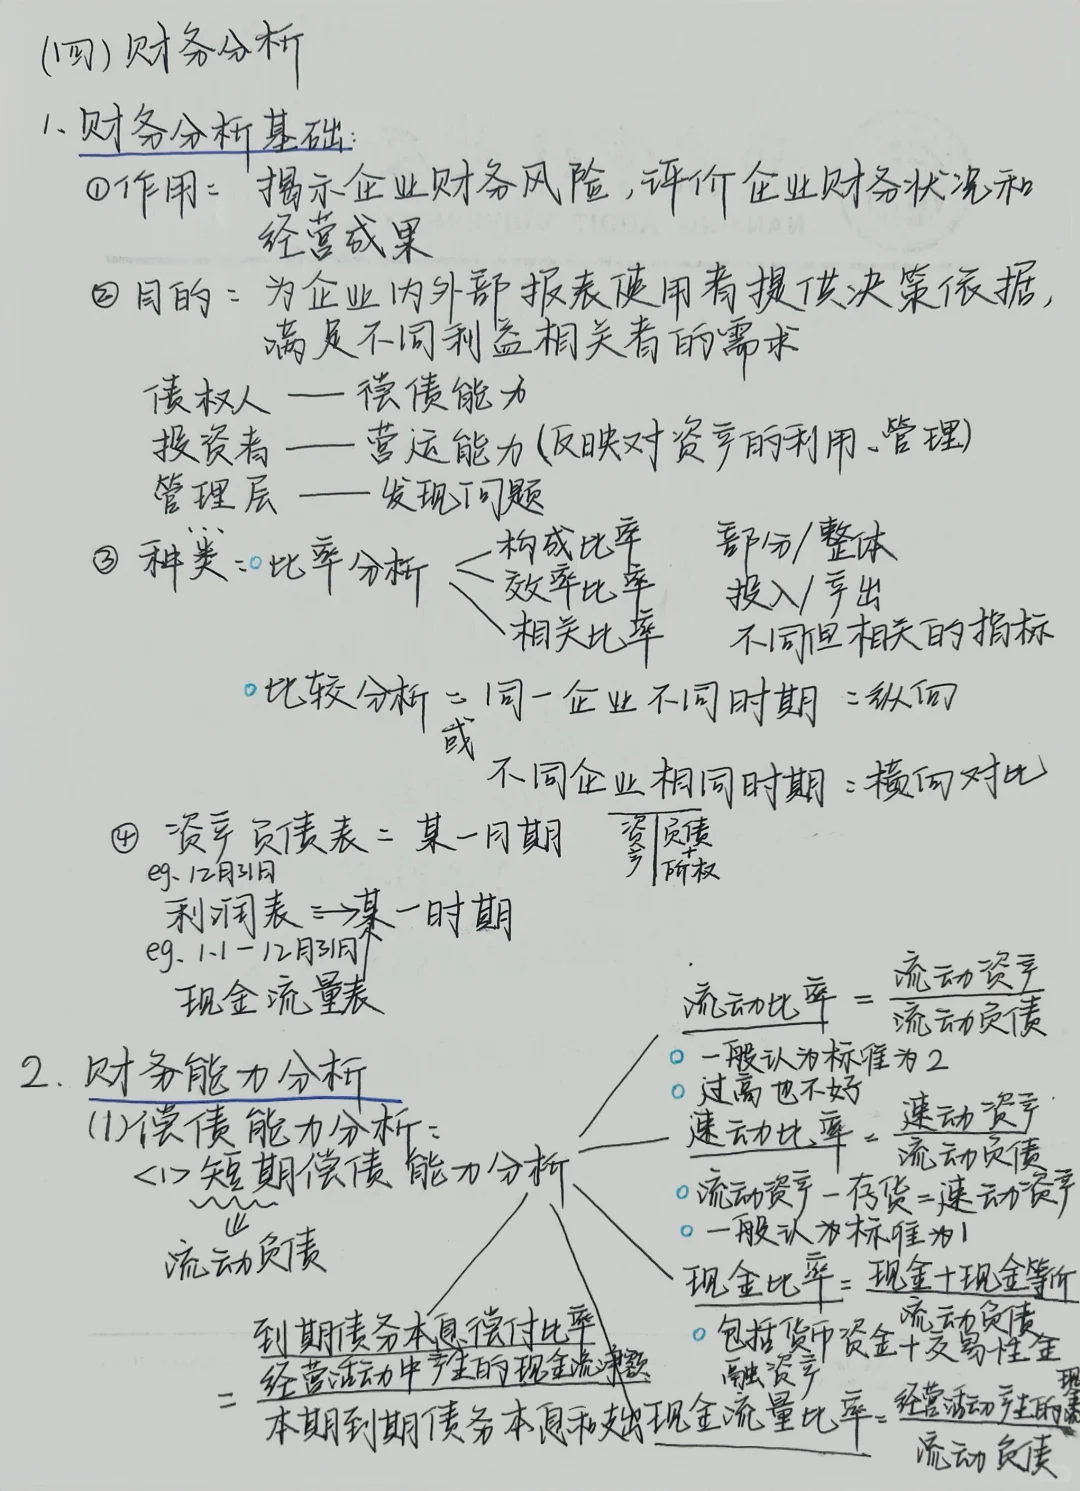 (四)财务分析
1、财务分析基础:
①作用: 揭示企业财务风险,评价企业财务状况和
经营成果
②目的: 为企业内外部报表使用者提供决策依据,
满足不同利益相关者的需求
债权人 —— 偿债能力
投资者 —— 营运能力(反映对资产的利用、管理)
管理层 —— 发现问题
③ 种类: 比率分析
构成比率 部分/整体
效率比率 投入/产出
相关比率 不同但相关的指标
比较分析: 同一企业不同时期:纵向
或
不同企业相同时期:横向对比
④ 资产负债表 = 某一日期
资产 负债+所权
eg、12月31日
利润表 => 某一时期
eg、1.1-12月31日
现金流量表
2.财务能力分析
(1)偿债能力分析:
<1>短期偿债能力分析
流动负债
流动比率 = 流动资产
流动负债
一般认为标准为2
过高也不好
速动比率 = 速动资产
流动负债
流动资产-存货=速动资产
一般认为标准为1
现金比率 = 现金+现金等价
流动负债
包括货币资金+交易性金
融资产
到期债务本息偿付比率
= 经营活动中产生的现金流净额
本期到期债务本息和支出
现金流量比率 = 经营活动产生的
流动负债